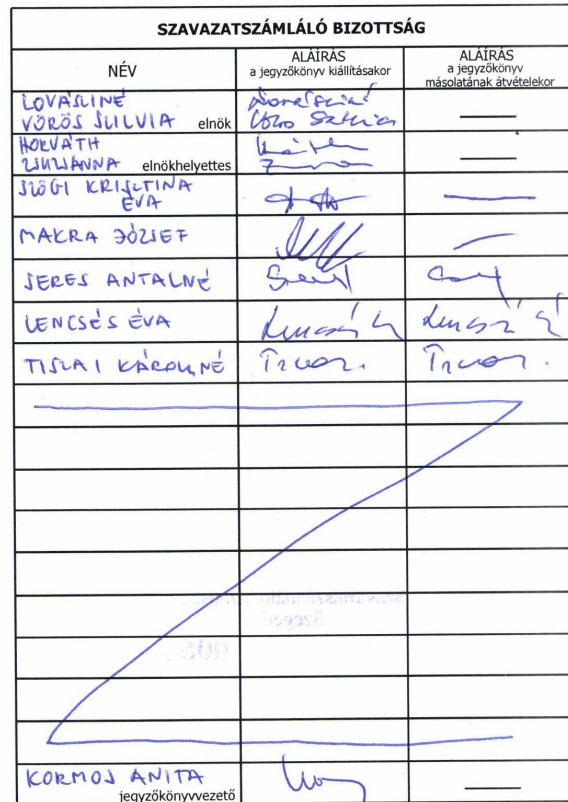 SZAVAZATSZÁMLÁLÓ BIZOTTSÁG
NÉV
ALÁÍRÁS
a jegyzőkönyv kiállításakor
ALÁÍRÁS
a jegyzőkönyv
másolatának átvételekor
LOVÁSZINÉ
VÖRÖS SZILVIA elnök
HORVÁTH
ZSUZSANNA elnökhelyettes
SZÖGI KRISZTINA
ÉVA
MAKRA JÓZSEF
SERES ANTALNÉ
LENCSÉS ÉVA
TISZAI KÁROLYNÉ
Szeged
KORMOS ANITA
jegyzőkönyvvezető